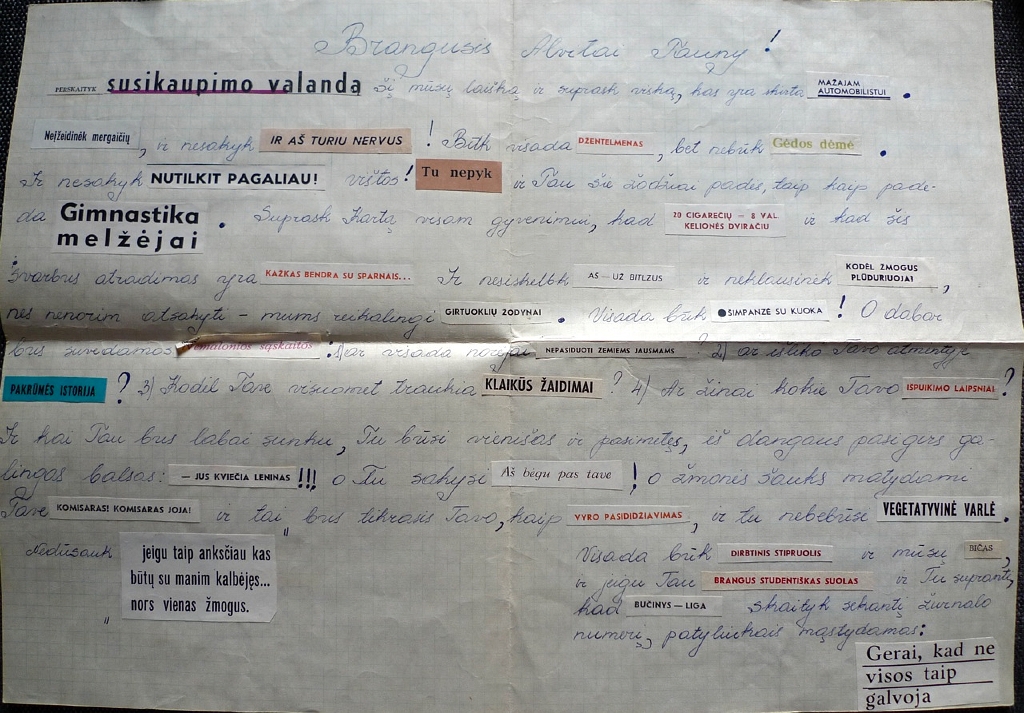 Brangusis !
PERSKAITYK susikaupimo valandą šį mūsų laišką ir suprask viską, kas yra skirta MAŽAJAM AUTOMOBILISTUI .
Neįžeidinėk mergaičių , ir nesakyk IR AŠ TURIU NERVUS ! Būk visada DŽENTELMENAS , bet nebūk Gėdos dėmė .
Ir nesakyk NUTILKIT PAGALIAU! vištos! Tu nepyk ir Tau šie žodžiai padės, taip kaip pade-
da Gimnastika melžėjai . Suprask kartą visam gyvenimui, kad 20 CIGAREČIŲ — 8 VAL. KELIONĖS DVIRAČIU ir kad šis
svarbus atradimas yra KAŽKAS BENDRA SU SPARNAIS... Ir nesiskelbk AŠ — UŽ BITLZUS ir neklausinėk KODĖL ŽMOGUS PLŪDURIUOJA! ,
nes nenorim atsakyti - mums reikalingi GIRTUOKLIŲ ŽODYNAI . Visada būk ŠIMPANZĖ SU KUOKA ! O dabar
bus suvedamos sąskaitos : 1) ar visada norėjai NEPASIDUOTI ŽEMIEMS JAUSMAMS ? 2) ar išliko Tavo atmintyje
PAKRŪMĖS ISTORIJA ? 3) Kodėl Tave visuomet traukia KLAIKŪS ŽAIDIMAI ? 4) Ar žinai kokie Tavo IŠPUIKIMO LAIPSNIAI ?
Ir kai Tau bus labai sunku, Tu būsi vienišas ir pasimetęs, iš dangaus pasigirs ga-
lingas balsas: — JUS KVIEČIA LENINAS !!! o Tu sakysi Aš bėgu pas tave ! o žmonės šauks matydami
Tave KOMISARAS! KOMISARAS JOJA! ir tai bus tikrasis Tavo, kaip VYRO PASIDIDŽIAVIMAS , ir tu nebebūsi VEGETATYVINĖ VARLĖ .
Nedūsauk „ jeigu taip anksčiau kas
būtų su manim kalbėjęs...
nors vienas žmogus. "
Visada būk DIRBTINIS STIPRUOLIS ir mūsų BIČAS ,
ir jeigu Tau BRANGUS STUDENTIŠKAS SUOLAS ir Tu supranti,
kad BUČINYS — LIGA skaityk sekantį žurnalo
numerį, patyliukais mąstydamas:
Gerai, kad ne
visos taip
galvoja